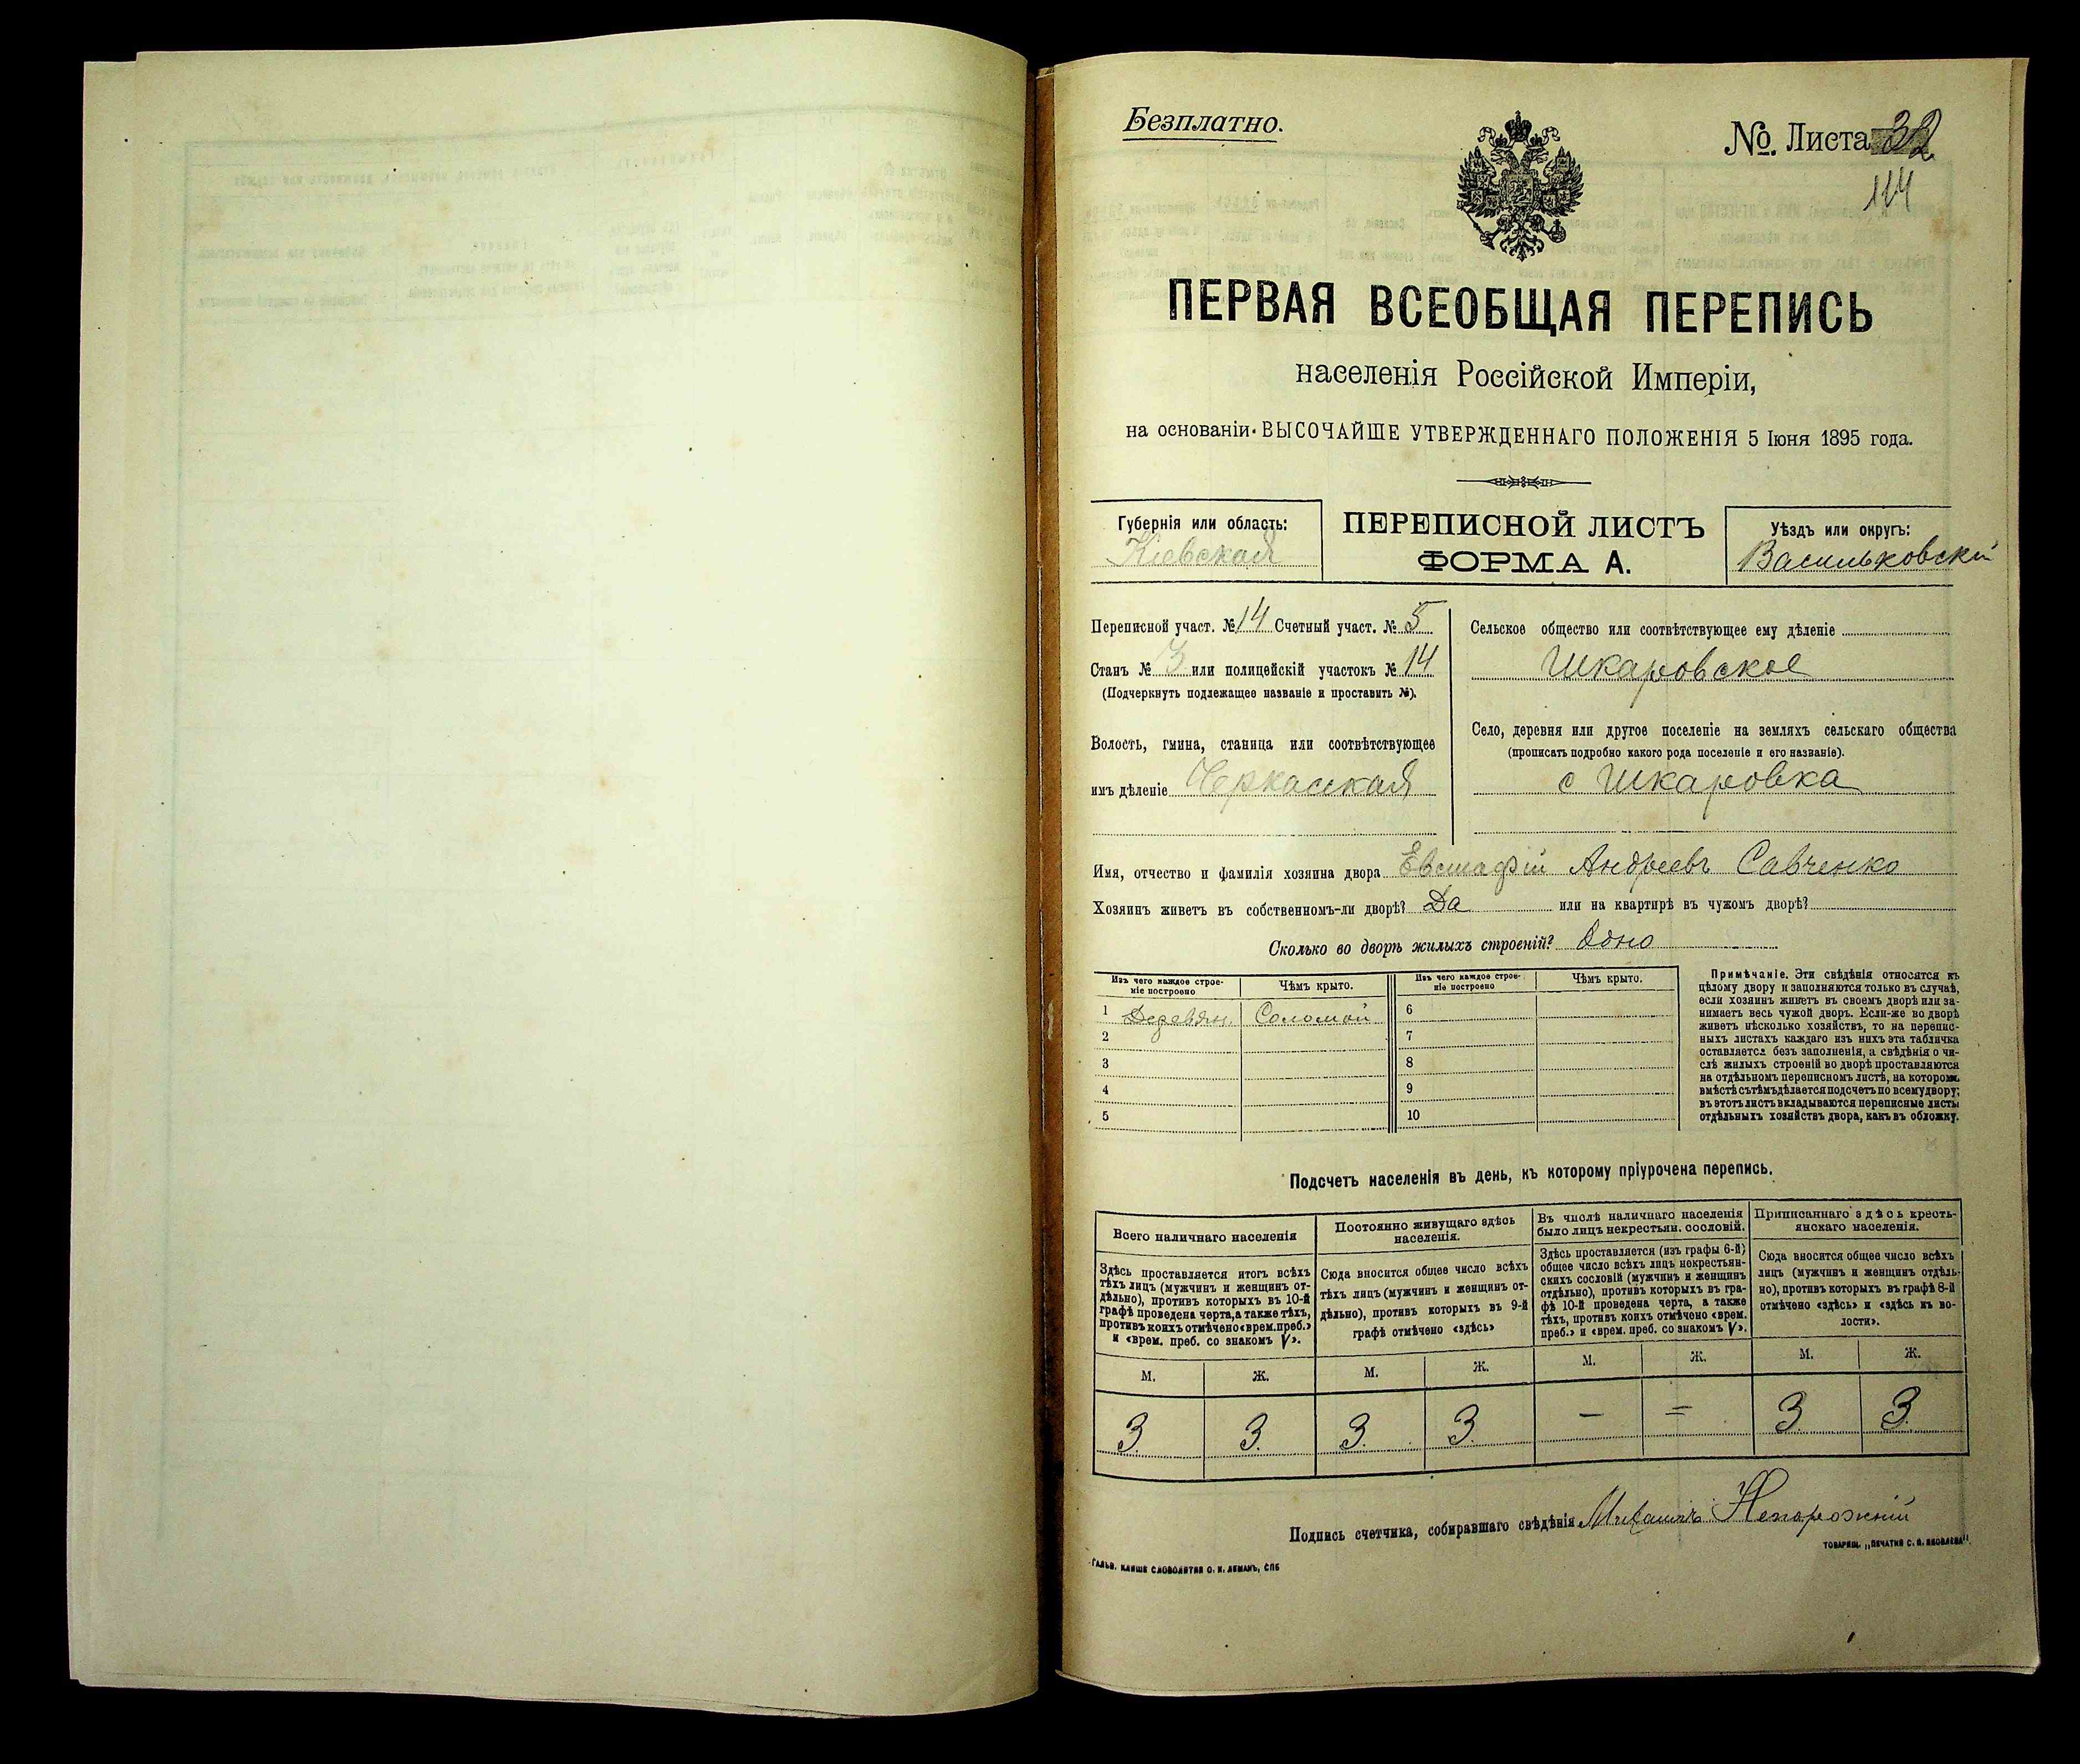 Безплатно.
№. Листа 32
114
ПЕРВАЯ ВСЕОБЩАЯ ПЕРЕПИСЬ
населенія Россійской Имперіи,
на основаніи ВЫСОЧАЙШЕ УТВЕРЖДЕННАГО ПОЛОЖЕНІЯ 5 Іюня 1895 года.
Губернія или область:
Кіевская
ПЕРЕПИСНОЙ ЛИСТЪ
ФОРМА А.
Уѣздъ или округъ:
Васильковскій
Переписной участ. № 14 Счетный участ. № 5
Станъ № 3 или полицейскій участокъ № 14
(Подчеркнуть подлежащее названіе и проставить №).
Волость, гмина, станица или соотвѣтствующее
имъ дѣленіе Черкасская
Сельское общество или соотвѣтствующее ему дѣленіе
Шкаровское
Село, деревня или другое поселеніе на земляхъ сельскаго общества
(прописать подробно какого рода поселеніе и его названіе).
с Шкаровка
Имя, отчество и фамилія хозяина двора Евстафій Андреевъ Савченко
Хозяинъ живетъ въ собственномъ-ли дворѣ? Да или на квартирѣ въ чужомъ дворѣ?
Сколько во дворѣ жилыхъ строеній? Одно
Изъ чего каждое строе-
ніе построено
Чѣмъ крыто.
Изъ чего каждое строе-
ніе построено
Чѣмъ крыто.
1 Деревян. Соломой 6
2 7
3 8
4 9
5 10
Примѣчаніе. Эти свѣдѣнія относятся къ
цѣлому двору и заполняются только въ случаѣ,
если хозяинъ живетъ въ своемъ дворѣ или за-
нимаетъ весь чужой дворъ. Если-же во дворѣ
живетъ нѣсколько хозяйствъ, то на перепис-
ныхъ листахъ каждаго изъ нихъ эта табличка
оставляется безъ заполненія, а свѣдѣнія о чи-
слѣ жилыхъ строеній во дворѣ проставляются
на отдѣльномъ переписномъ листѣ, на которомъ
вмѣстѣ съ тѣмъ дѣлается подсчетъ по всему двору;
въ этотъ листъ вкладываются переписные листы
отдѣльныхъ хозяйствъ двора, какъ въ обложку.
Подсчетъ населенія въ день, къ которому пріурочена перепись.
Всего наличнаго населенія
Постоянно живущаго здѣсь
населенія.
Въ числѣ наличнаго населенія
было лицъ некрестьян. сословій.
Приписаннаго здѣсь кресть-
янскаго населенія.
Здѣсь проставляется итогъ всѣхъ
тѣхъ лицъ (мужчинъ и женщинъ от-
дѣльно), противъ которыхъ въ 10-й
графѣ проведена черта, а также тѣхъ,
противъ коихъ отмѣчено «врем. преб.»
и «врем. преб. со знакомъ V».
Сюда вносится общее число всѣхъ
тѣхъ лицъ (мужчинъ и женщинъ от-
дѣльно), противъ которыхъ въ 9-й
графѣ отмѣчено «здѣсь»
Здѣсь проставляется (изъ графы 6-й)
общее число всѣхъ лицъ некрестьян-
скихъ сословій (мужчинъ и женщинъ
отдѣльно), противъ которыхъ въ гра-
фѣ 10-й проведена черта, а также
тѣхъ, противъ коихъ отмѣчено «врем.
преб.» и «врем. преб. со знакомъ V».
Сюда вносится общее число всѣхъ
лицъ (мужчинъ и женщинъ отдѣль-
но), противъ которыхъ въ графѣ 8-й
отмѣчено «здѣсь» и «здѣсь къ во-
лости».
М. Ж. М. Ж. М. Ж. М. Ж.
3. 3. 3. 3. — = 3. 3.
Подпись счетчика, собиравшаго свѣдѣнія Михаилъ Непорожній
ТОВАРИЩ. „ПЕЧАТНЯ С. П. ЯКОВЛЕВА".
ГАЛЬВ. КЛИШЕ СЛОВОЛИТНИ О. И. ЛЕМАНЪ, СПБ